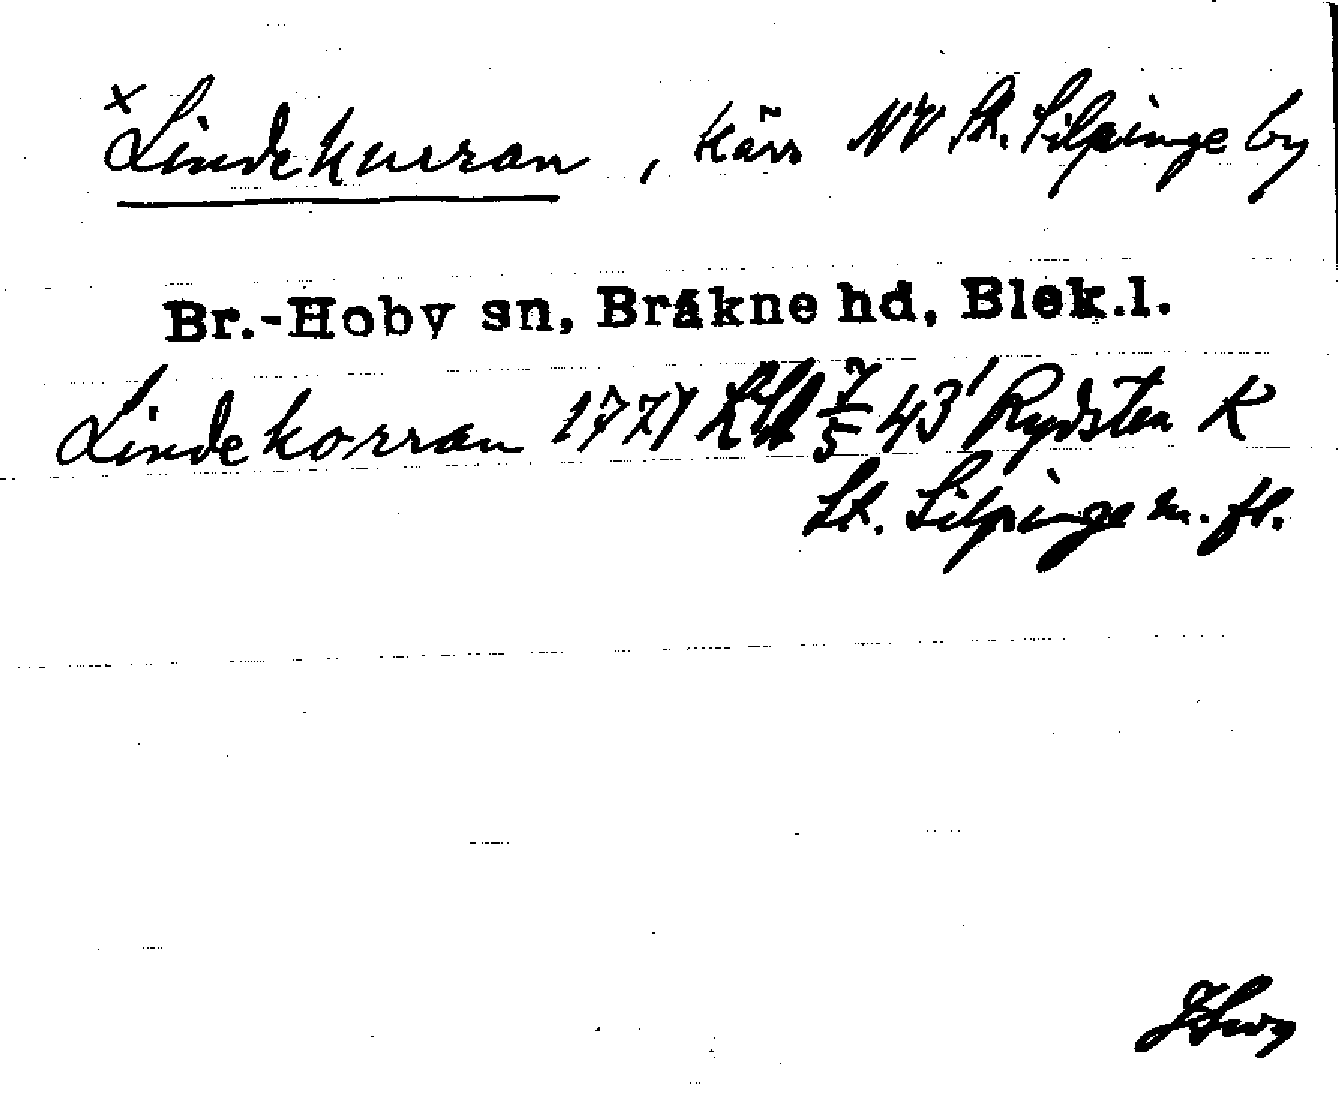 × Lindekurran, kärr NV St. Silpinge by
Br.-Hoby sn, Bräkne hd, Blek.l.
Lindekorran 1771 LSA 7/5 43' Rydsten K
St. Silpinge m. fl.